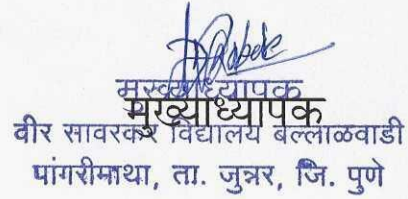 मुख्याध्यापक
मुख्याध्यापक
वीर सावरकर विद्यालय बल्लाळवाडी
पांगरीमाथा, ता. जुन्नर, जि. पुणे